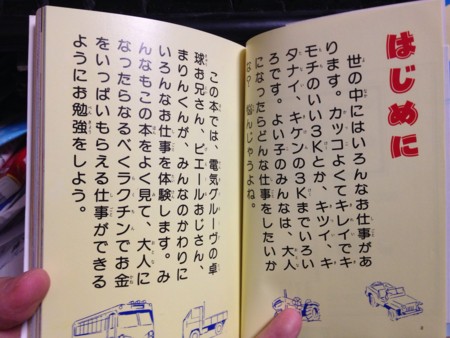 はじめに
世の中にはいろんなお仕事があ
ります。カッコよくてキレイでキ
モチのいい3Kとか、キツイ、キ
タナイ、キケンの3Kまでいろい
ろです。よい子のみんなは、大人
になったらどんな仕事をしたいか
な？　悩んじゃうよね。
この本では、電気グルーヴの卓
球お兄さん、ピエールおじさん、
まりんくんが、みんなのかわりに
いろんなお仕事を体験します。み
んなもこの本をよく見て、大人に
なったらなるべくラクチンでお金
をいっぱいもらえる仕事ができる
ようにお勉強をしよう。